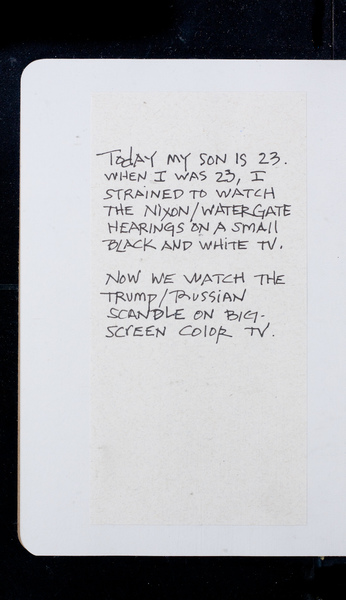 TODAY MY SON IS 23.
WHEN I WAS 23, I
STRAINED TO WATCH
THE NIXON/WATERGATE
HEARINGS ON A SMALL
BLACK AND WHITE TV.
NOW WE WATCH THE
TRUMP/RUSSIAN
SCANDLE ON BIG-
SCREEN COLOR TV.